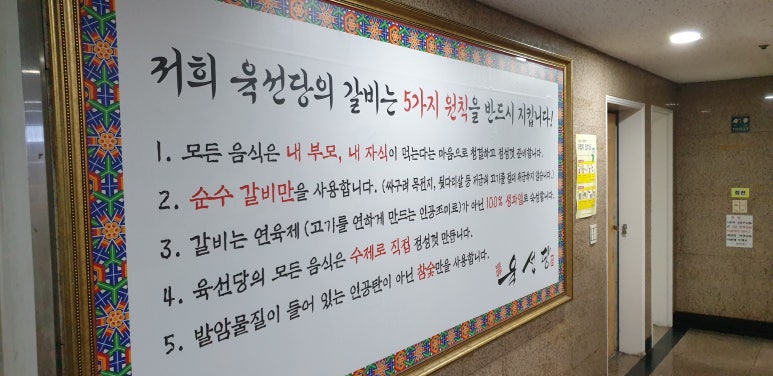 저희 육선당의 갈비는 5가지 원칙을 반드시 지킵니다!
1. 모든 음식은 내 부모, 내 자식이 먹는다는 마음으로 청결하고 정성껏 준비합니다.
2. 순수 갈비만을 사용합니다. (싸구려 목전지, 뒷다리살 등 저급의 고기를 절대 취급하지 않습니다.)
3. 갈비는 연육제 (고기를 연하게 만드는 인공조미료)가 아닌 100% 생과일로 숙성합니다.
4. 육선당의 모든 음식은 수제로 직접 정성껏 만듭니다.
5. 발암물질이 들어 있는 인공탄이 아닌 참숯만을 사용합니다.
육선당
TOILET